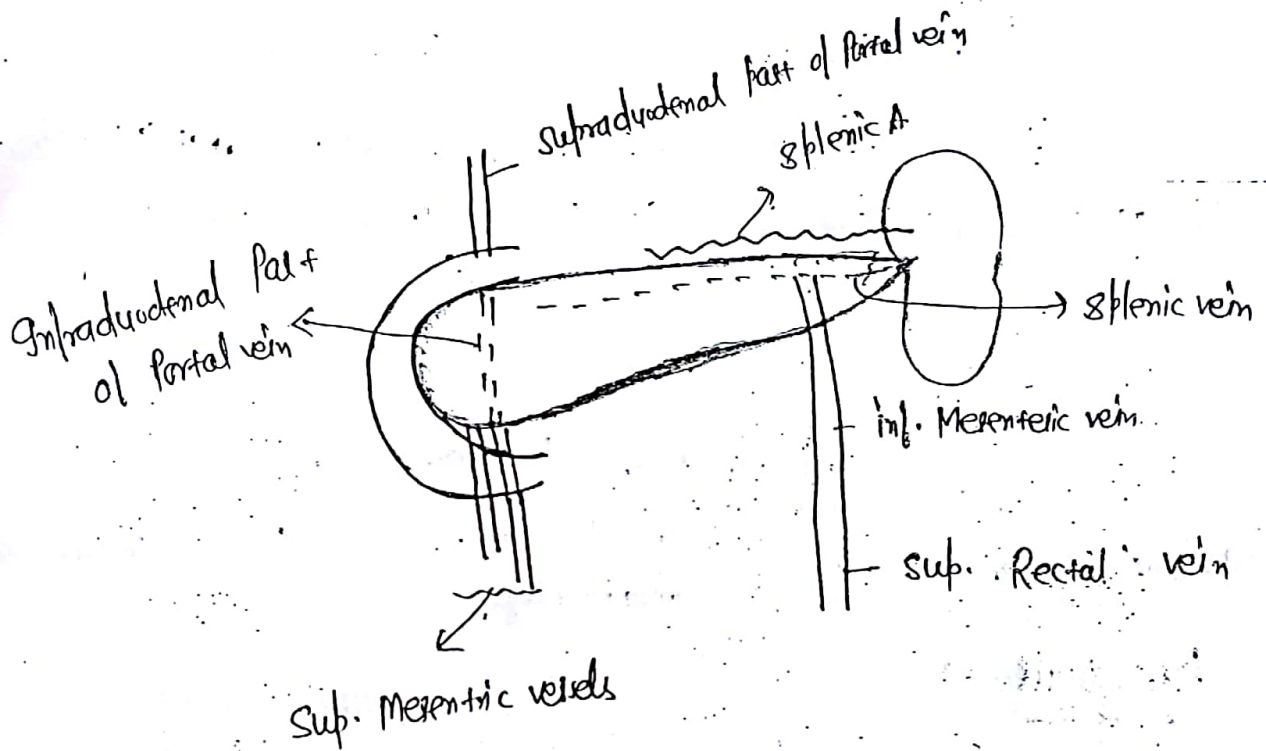 Supraduodenal part of Portal vein
Splenic A
Infraduodenal Part
of Portal vein
Splenic vein
inf. Mesenteric vein
Sup. Rectal vein
Sup. Mesentric vessels